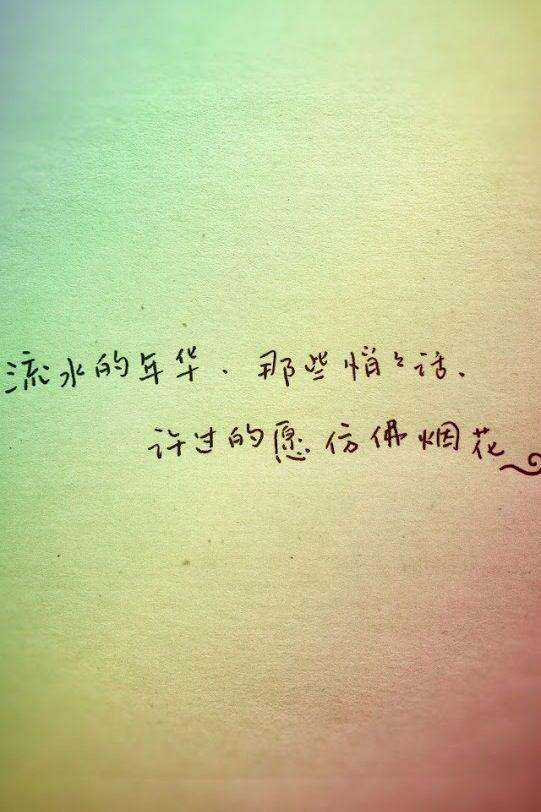 流水的年华.那些悄々话.
许过的愿仿佛烟花